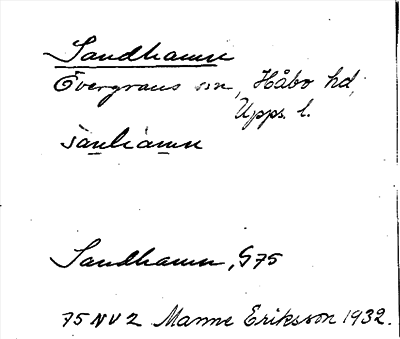 Sandhamn
Övergrans sn, Håbo hd,
Upps. l.
sanhamn
Sandhamn, G75
75 NV 2 Manne Eriksson 1932.